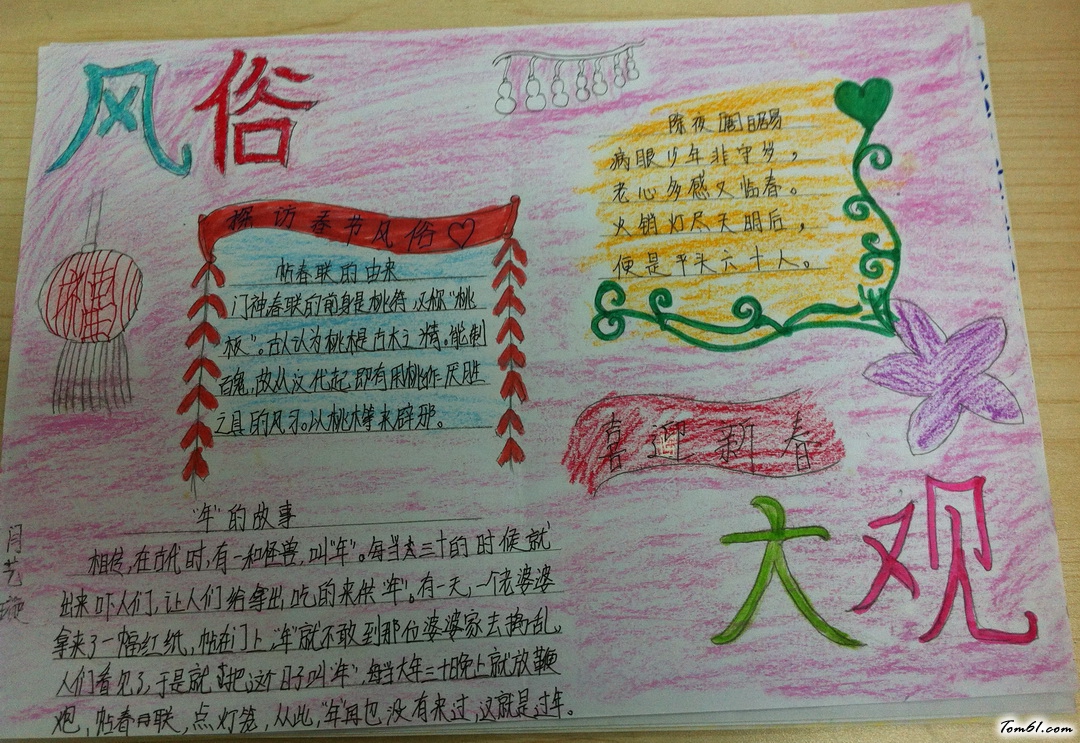 风俗
探访春节风俗
帖春联的由来
门神春联的前身是桃符，又称“桃
板”。古人认为桃木是百木之精。能制
百鬼，故从汉代起即有用桃作厌胜
之具的风习。以桃木等来辟邪。
“年”的故事
相传，在古代时，有一种怪兽，叫“年”。每当大三十的时候就
出来吓人们，让人们给拿出吃的来供“年”。有一天，一个老婆婆
拿来了一幅红纸，帖在门上，“年”就不敢到那位婆婆家去捣乱。
人们看见了，于是就把这个日子叫“年”，每当大年三十晚上就放鞭
炮，帖春联，点灯笼，从此，“年”再也没有来过，这就是过年。
除夜
病眼少年非守岁，
老心多感又临春。
火销灯尽天明后，
便是平头六十人。
喜迎新春
大观
月艺
Tom61.com